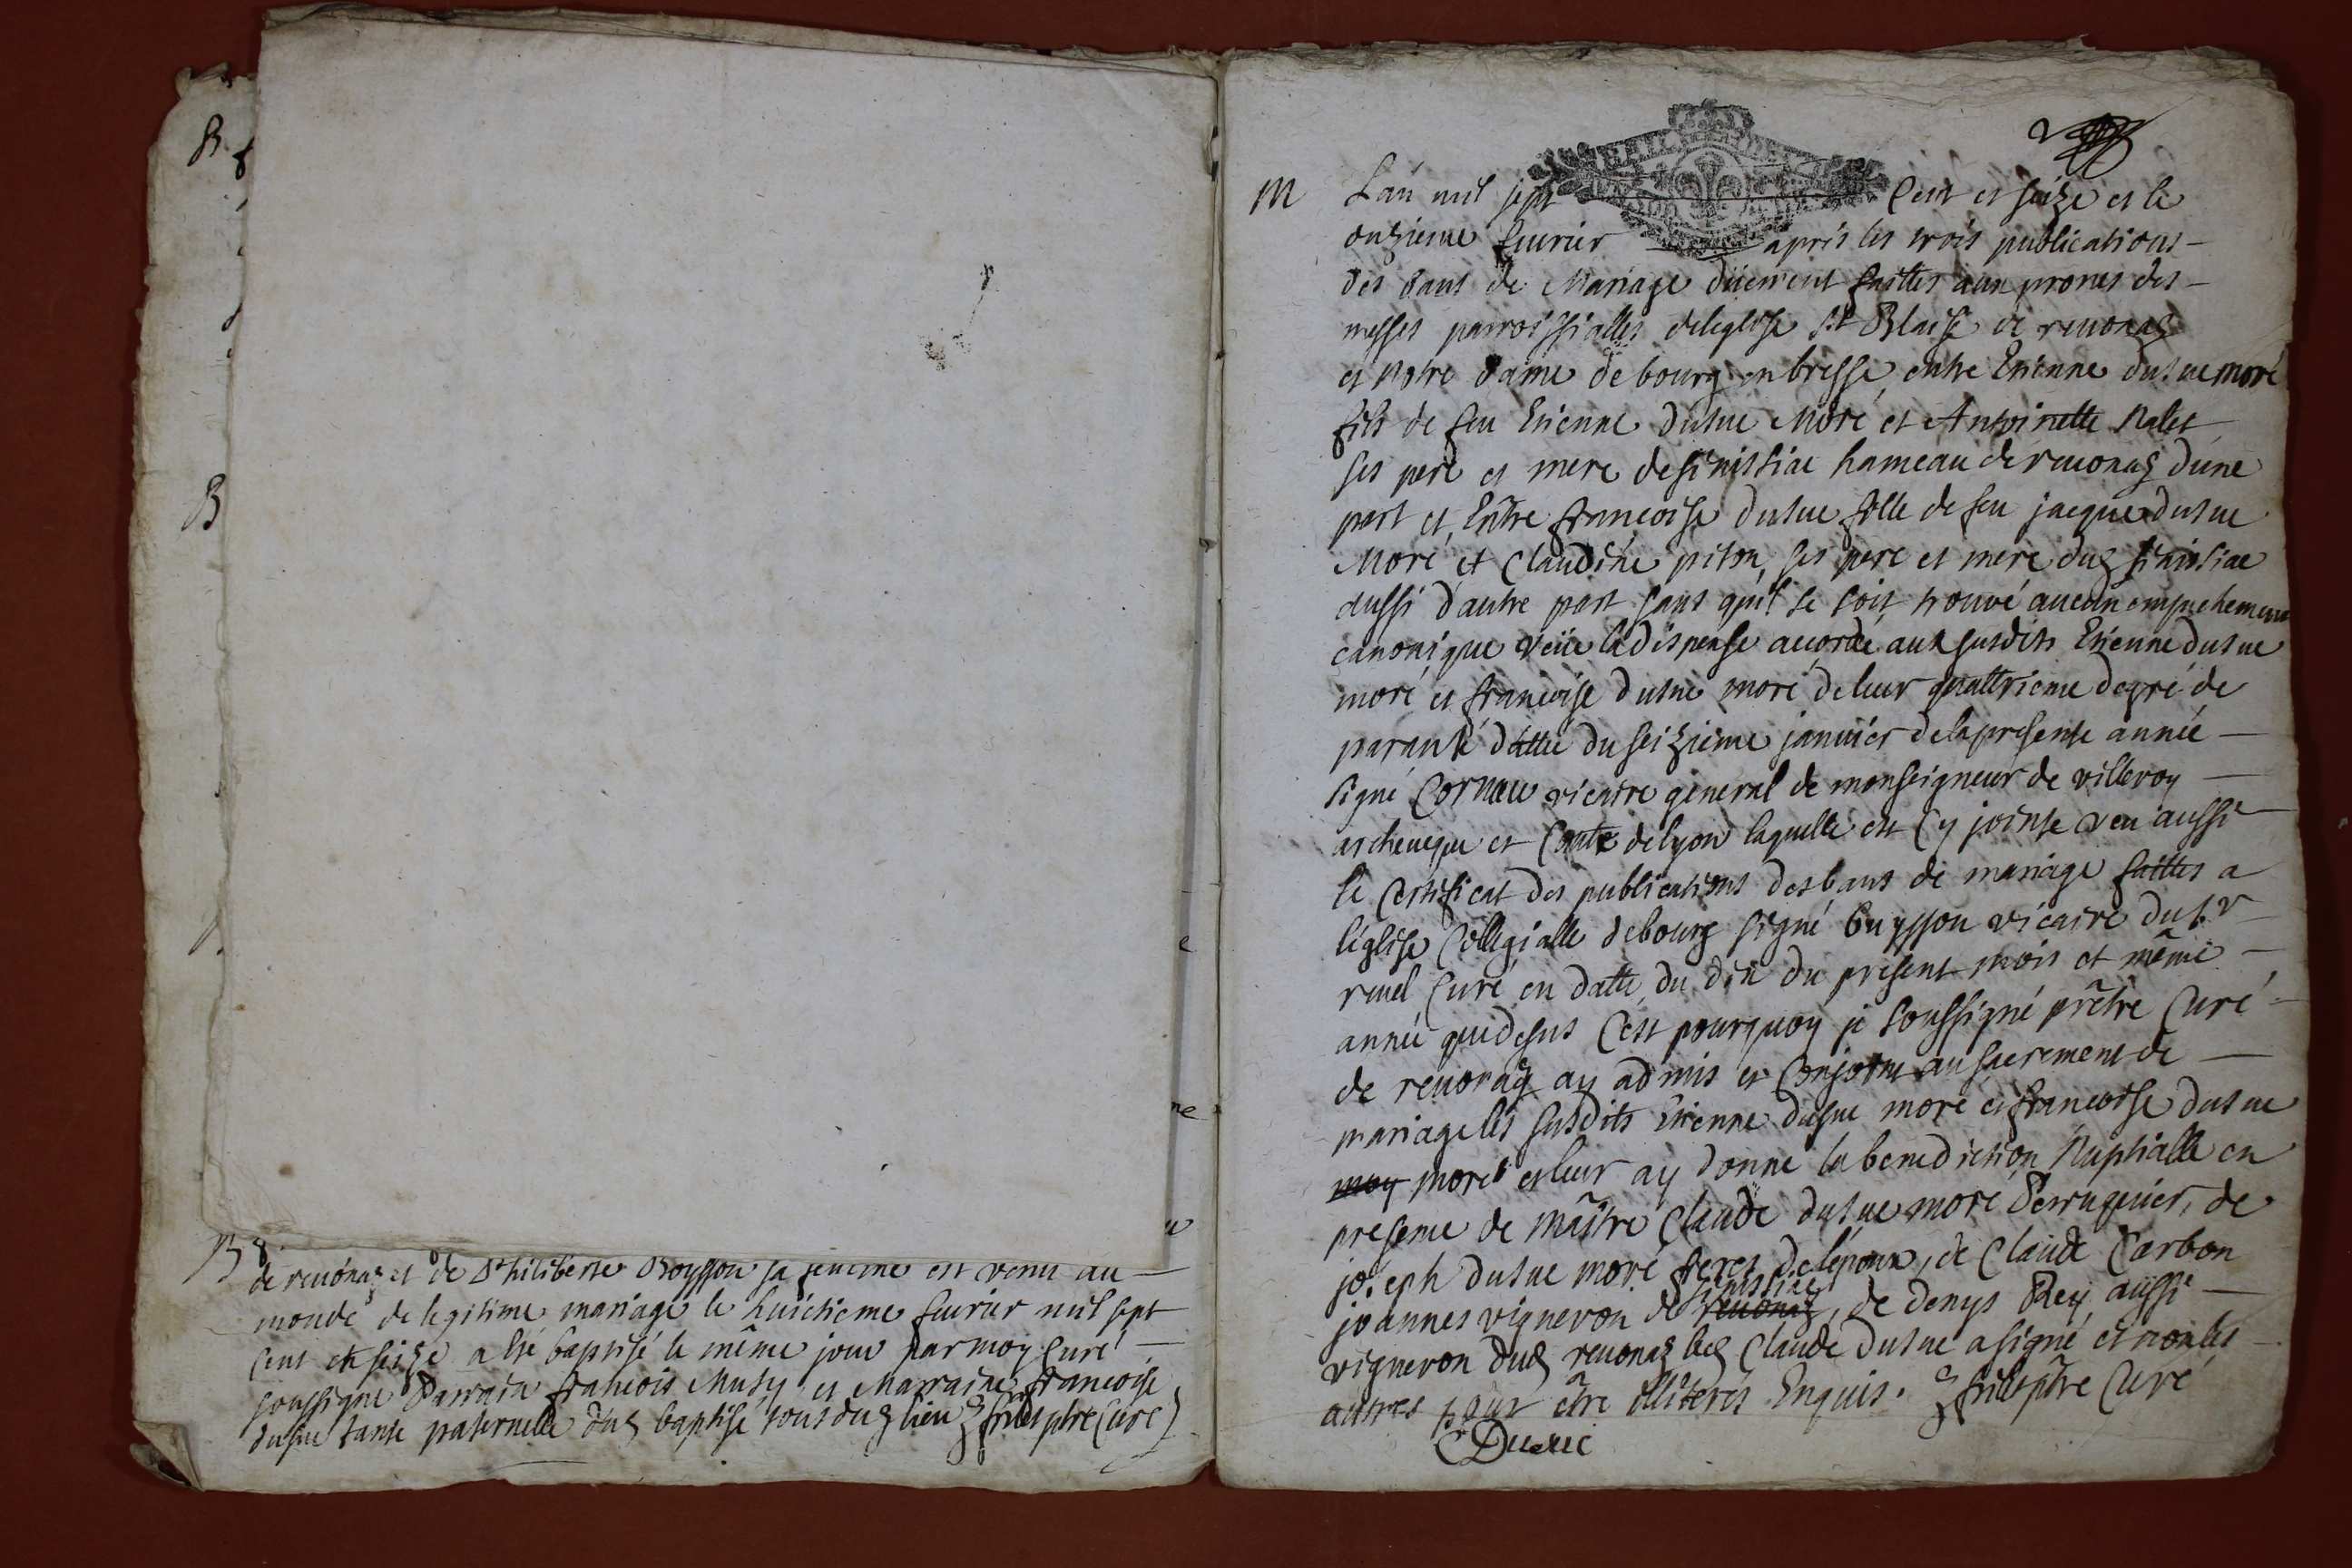 B
B
B
de reuonaz et de Philiberte Boysson sa femme est venu au
monde de legitime mariage le huictieme feurier mil sept
cent et seize a été baptisé le même jour par moy curé
soussigné Parrain francois Musy et Marraine francoise
dusue tante paternelle dud baptisé tous dud lieu ptre Curé
M
L'an mil sept cent et seize et le
onzieme feurier après les trois publications
des bans de Mariage düement faittes aux prones des
messes parroissialles deleglise St Blaise de reuonaz
et Notre Dame de bourg en bresse entre Etienne dusue moré
fils de feu Etienne dusue Moré et Antoinette Nalet
ses pere et mere desinissiac hameau de reuonaz d'une
part et, Entre françoise dusue fille de feu jacque dusue
Moré et Claudine piton, ses pere et mere dud sinissiac
aussi d'autre part sans quil se soit trouvé aucun empechement
canonique veüe la dispense accordée aux susdits Etienne dusue
moré et francoise dusue moré de leur quattrieme degré de
paranté dattée du seizieme janvier de la presente année
signé Cornau vicaire general de monseigneur de villeroy
archeueque et Conte de lyon laquelle est Cy jointe veu aussi
le Certificat des publications des bans de mariage faittes a
l'églisse Collegialle de bourg signé Buysson vicaire du Sr
reuel Curé en datte du dix du present mois et même
année que desus C'est pourquoy je soussigné prêtre Curé
de reuonaz ay admis et Conjoint au sacrement de
mariage les susdits Etienne dusue moré et francoise dusue
moy moré et leur ay donné la benediction Nuptialle en
presence de Maître Claude dusue moré Perruquier, de
joseph dusue moré freres de l'epoux, de Claude Carbon
sinissiac
joannes vigneron de reuonaz, de denys Rey aussi
vigneron dud reuonaz led Claude dusue a signé et non les
autres pour être illiterés Enquis. ptre Curé
Dusue